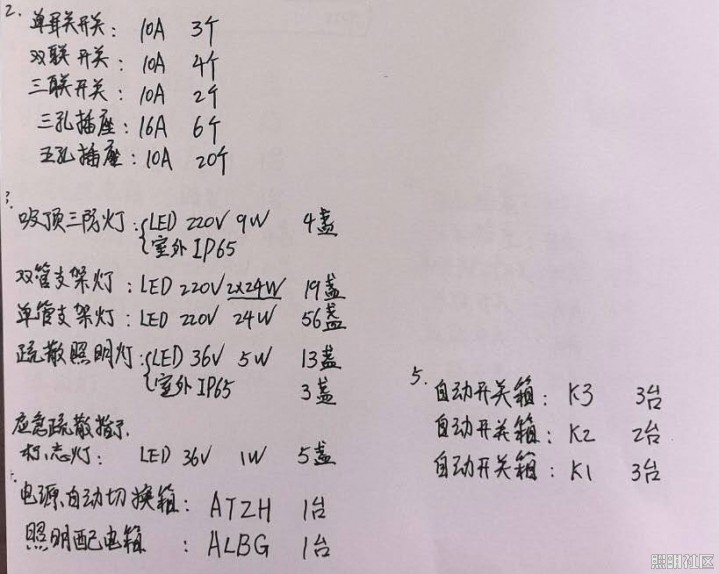 2. 单联开关: 10A 3个
双联开关: 10A 4个
三联开关: 10A 2个
三孔插座: 16A 6个
五孔插座: 10A 20个
3.
吸顶三防灯: LED 220V 9W 4盏
室外IP65
双管支架灯: LED 220V 2x24W 19盏
单管支架灯: LED 220V 24W 56盏
疏散照明灯: LED 36V 5W 13盏
室外IP65 3盏
应急疏散指示
标志灯: LED 36V 1W 5盏
电源自动切换箱: ATZH 1台
照明配电箱: ALBG 1台
5. 自动开关箱: K3 3台
自动开关箱: K2 2台
自动开关箱: K1 3台
照明社区